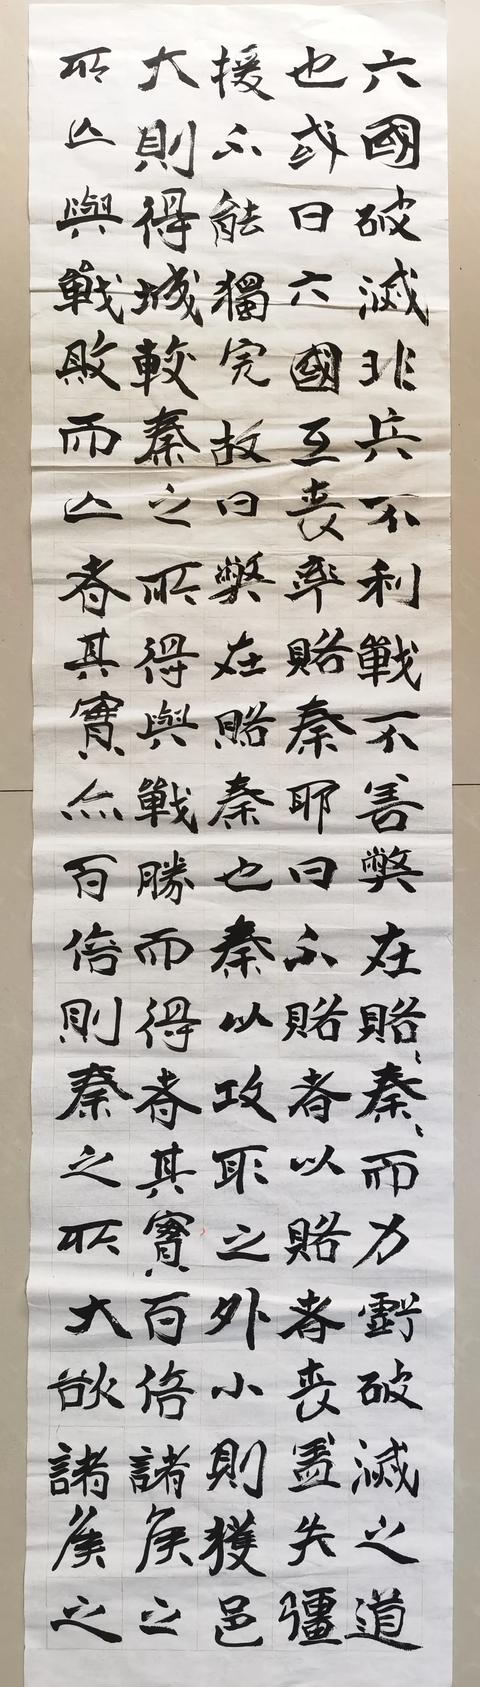 六國破滅非兵不利戰不善弊在賂〻秦〻而力虧破滅之道
也或曰六國互喪率賂秦耶曰不賂者以賂者喪蓋失彊
援不能獨完故曰弊在賂秦也秦以攻取之外小則獲邑
大則得城較秦之所得與戰勝而得者其實百倍諸侯之
所亡與戰敗而亡者其實亦百倍則秦之所大欲諸侯之